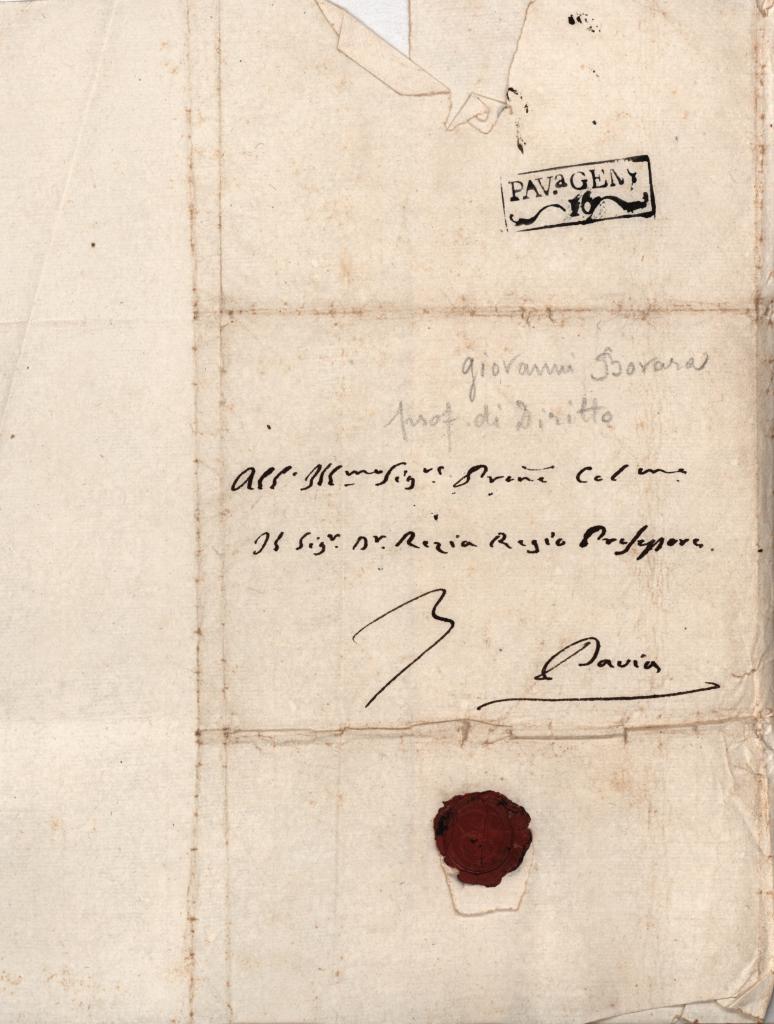 PAV.ª GEN.
16
Giovanni Bovara
prof. di Diritto
All' Ill.mo Sig.re Prone Col.mo
Il Sig.r D.r Rezia Regio Professore.
Pavia